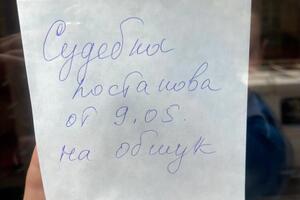 Судебна
постанова
от 9.05.
на обшук